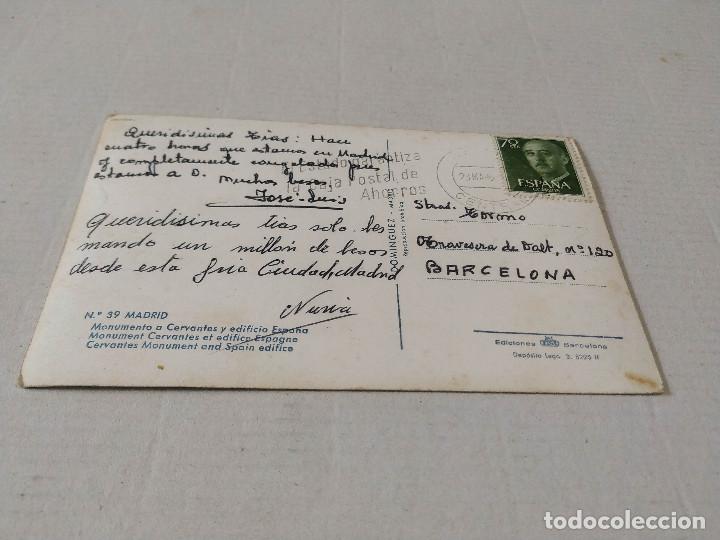 Queridisimas Tias: Hace
cuatro horas que estamos en Madrid
y completamente congelados pues
estamos a 0. Muchos besos
José-Luis
Queridisimas tias solo les
mando un millón de besos
desde esta fria Ciudad, Madrid
Nuria
N.º 39 MADRID
Monumento a Cervantes y edificio España
Monument Cervantes et edifice Espagne
Cervantes Monument and Spain edifice
DOMINGUEZ - MADRID
Estado garantiza
la Caja Postal de
Ahorros
70
ESPAÑA
CORREOS
Stras. Tormo
Travesera de Dalt, nº 120
BARCELONA
Ediciones Barcelona
todocoleccion.net